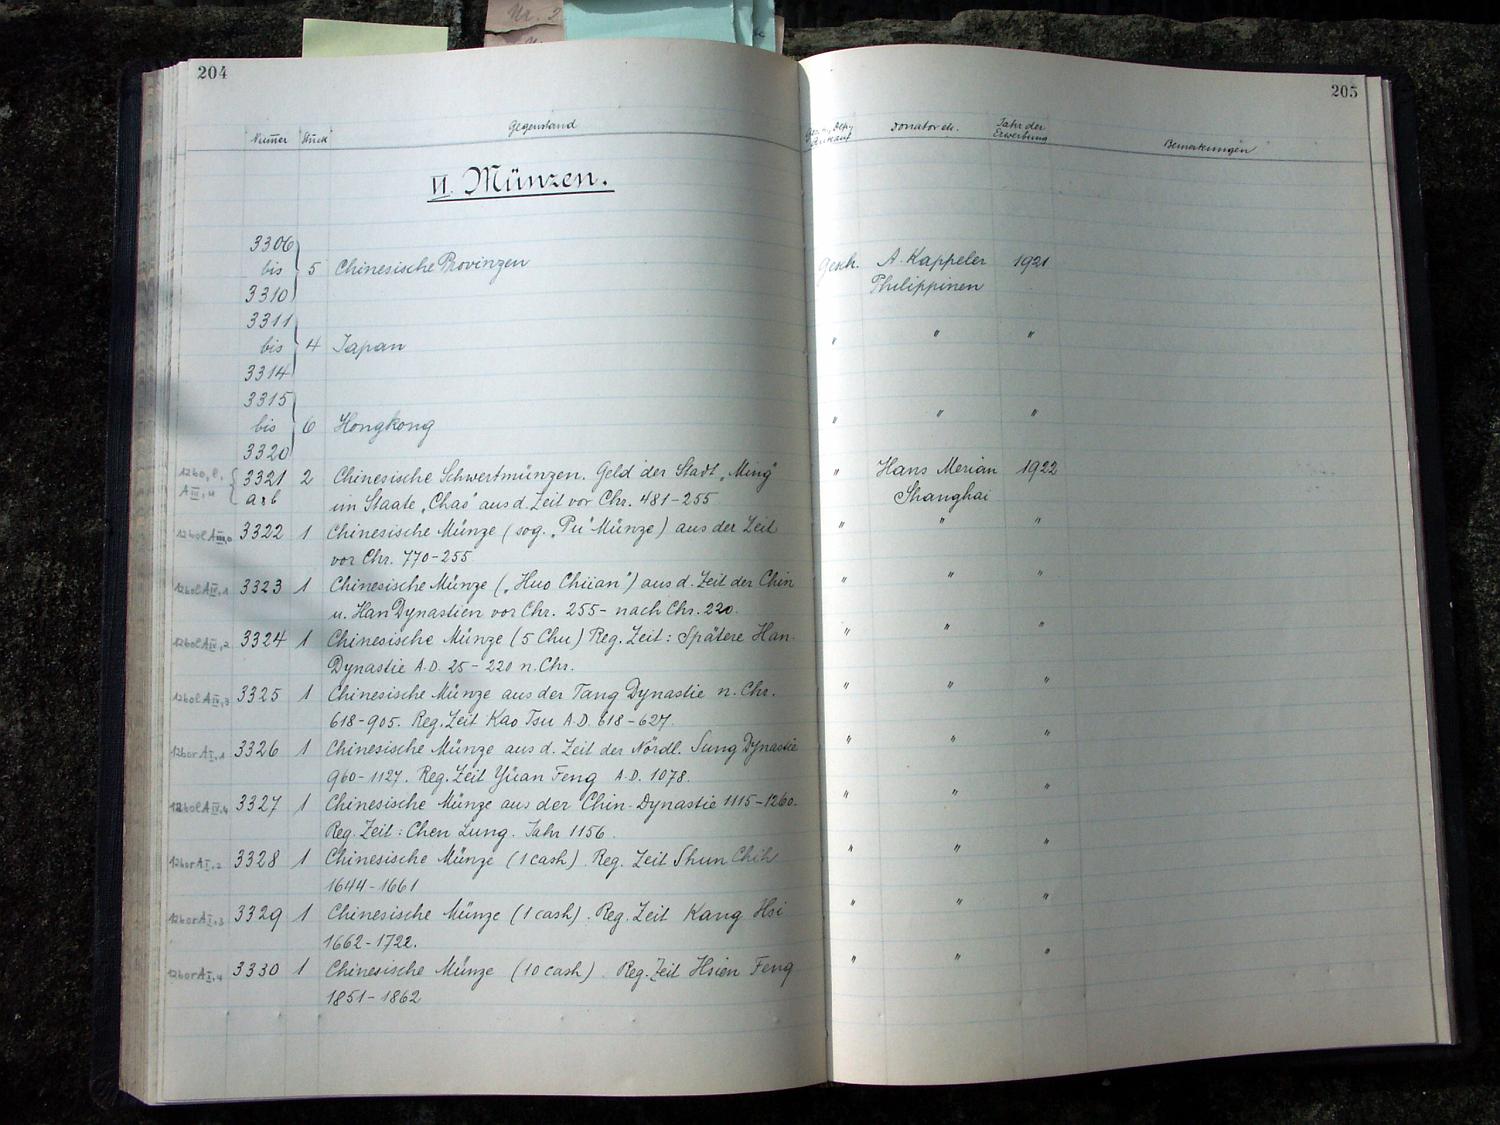 204
205
Numer Stück Gegenstand
Ankauf Donator etc. Jahr der Erwerbung Bemerkungen
VI. Münzen.
3306
bis 5 Chinesische Provinzen Gesch. A. Kappeler 1921
3310 Philippinen
3311
bis 4 Japan " " "
3314
3315
bis 6 Hongkong " " "
3320
3321 2 Chinesische Schwertmünzen. Geld der Stadt „Ming" " Hans Merian 1922
a+b im Staate „Chao" aus d. Zeit vor Chr. 481-255 Shanghai
3322 1 Chinesische Münze (sog. „Pu" Münze) aus der Zeit " " "
vor Chr. 770-255
3323 1 Chinesische Münze („Huo Chüan") aus d. Zeit der Chin " " "
u. Han Dynastien vor Chr. 255- nach Chr. 220.
3324 1 Chinesische Münze (5 Chu) Reg. Zeit: Spätere Han- " " "
Dynastie A.D. 25-220 n. Chr.
3325 1 Chinesische Münze aus der Tang Dynastie n. Chr. " " "
618-905. Reg. Zeit Kao Tsu A.D. 618-627.
3326 1 Chinesische Münze aus d. Zeit der Nördl. Sung Dynastie " " "
960-1127. Reg. Zeit Yüan Feng A.D. 1078.
3327 1 Chinesische Münze aus der Chin-Dynastie 1115-1260. " " "
Reg. Zeit: Chen Lung. Jahr 1156.
3328 1 Chinesische Münze (1 cash). Reg. Zeit Shun Chih " " "
1644-1661
3329 1 Chinesische Münze (1 cash). Reg. Zeit Kang Hsi " " "
1662-1722.
3330 1 Chinesische Münze (10 cash). Reg. Zeit Hsien Feng " " "
1851-1862